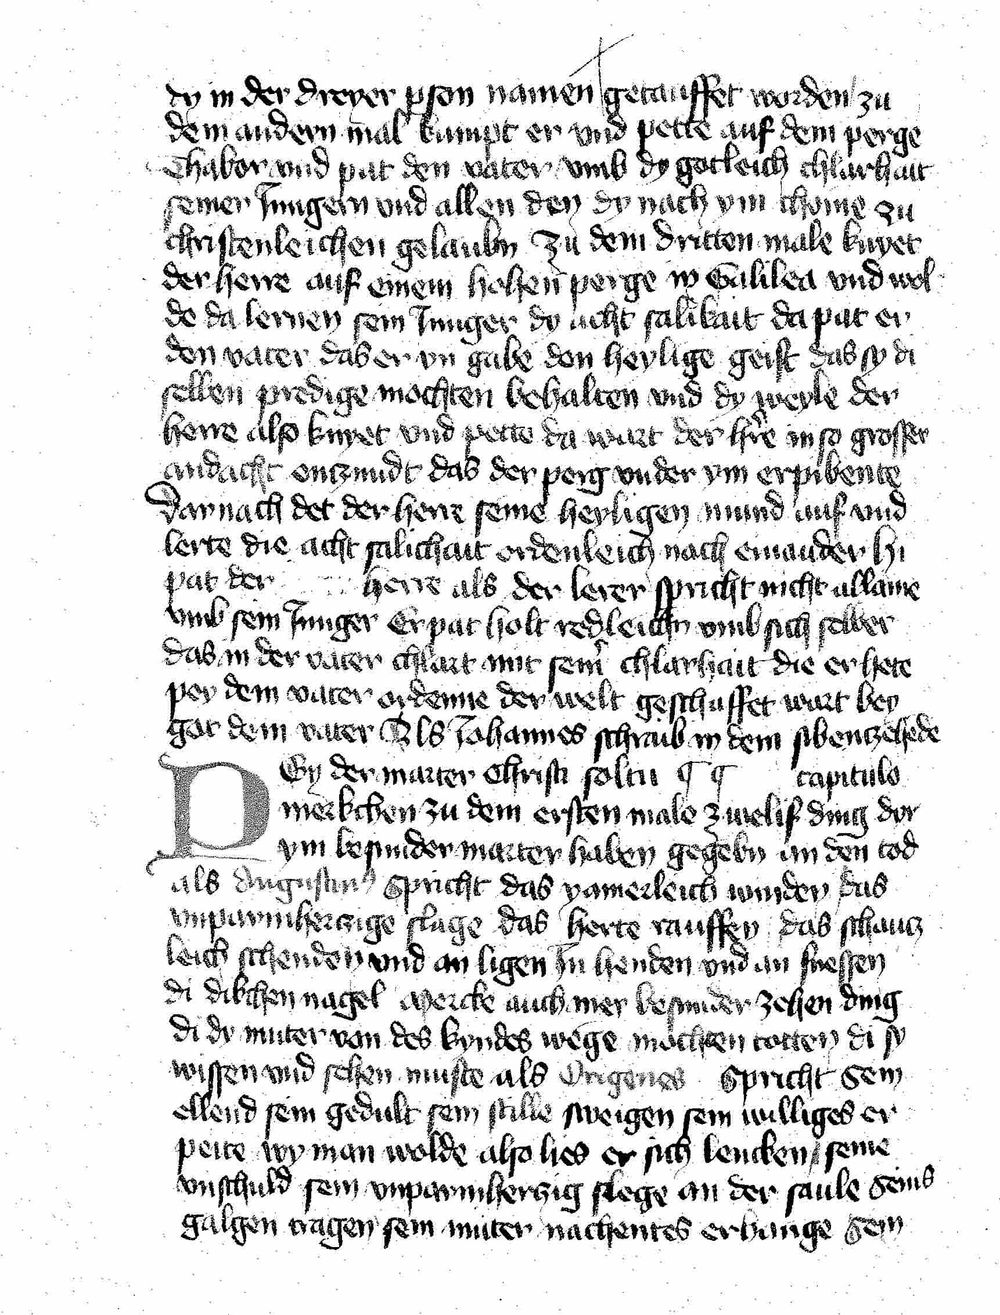 dy in der dreyer pson namen getauffet worden zu
dem andern mal kumpt er vnd pette auf dem perge
Thabor vnd pat den vater vmb dy gotleich chlarhait
seiner Jungern vnd allen den dy nach ym chome zu
christenleichen gelaubn Zu dem dritten male knyet
der herre auf einem hohen perge in Galilea vnd wol
de da lernen sein Junger dy acht salikait da pat er
den vater das er yn gabe den heylige geist das sy di
selben predige mochten behalten vnd dy weyle der
herre also knyet vnd pette da wart der hre in so grosser
andacht entzundt das der perg vnder ym erpibente
Darnach det der herre seine heyligen mund auf vnd
lerte die acht salichait ordenleich nach einander hi
pat der herre als der lerer spricht nicht allaine
vmb sein Junger Er pat holt redleichn vmb sich selber
das in der vater chlart mit seinr chlarhait die er hete
pey dem vater ordenne der welt geschaffet wart bey
got dem vater Als Johannes schraib in dem sibentzehede
BEy der marter Christi soltu ¶ ¶ capitulo
merkchen zu dem ersten male zwelif ding dor
ym besunder marter haben gegebn an den tod
als Augustin9 Spricht das yamerleich wunden das
vnparmhertzige slage das herte rauffen das schantz
leich schenden vnd an ligen In henden vnd an fuessen
di dikchen nagel Mercke auch mer besunder zehen ding
di dy muter von des kyndes wege mochten totten di sy
wissen vnd sehen muste als Origenes Spricht Sein
ellend sein gedult sein stille sweigen sein williges er
peite wy man wolde also lies er sich lencken / seine
vnschuld sein vnparmhertzig slege an der saule Seins
galgen tragen sein muter nachentes erhange Sein